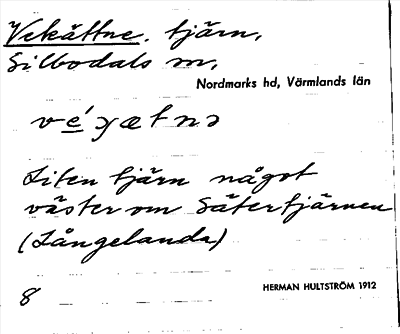 Vekättne. tjärn,
Silbodals sn,
Nordmarks hd, Värmlands län
vé̱ȝætnə
Liten tjärn något
väster om Sätertjärnen
(Långelanda)
8
HERMAN HULTSTRÖM 1912